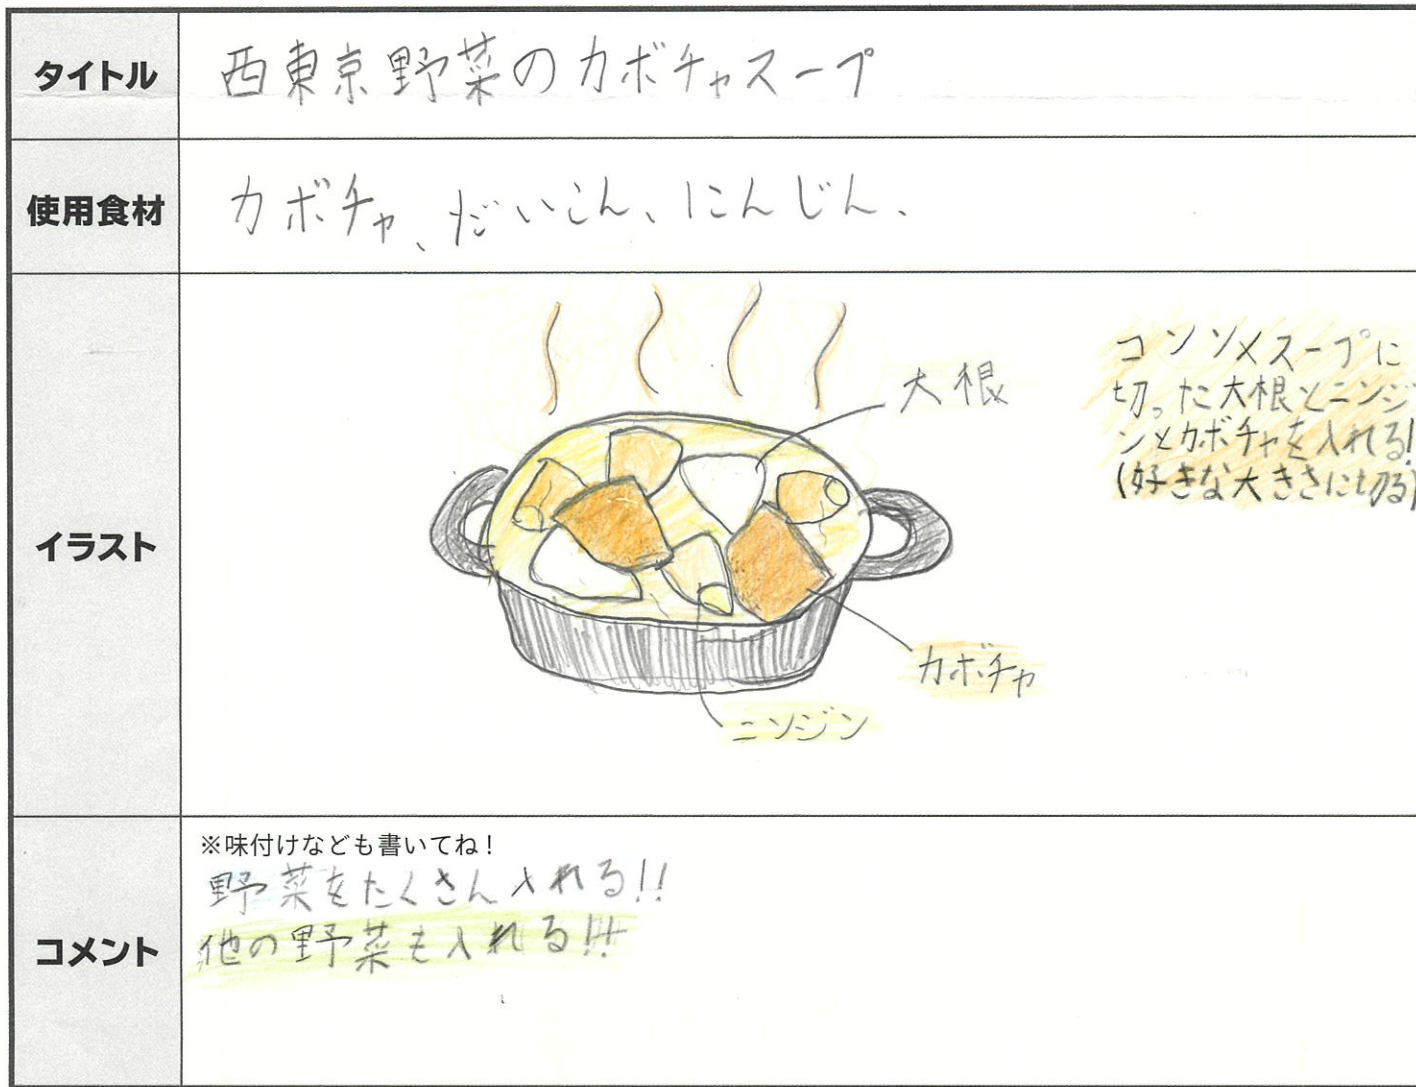 タイトル
西東京野菜のカボチャスープ
使用食材
カボチャ、だいこん、にんじん、
イラスト
大根
カボチャ
ニンジン
コンソメスープに
切った大根とニンジ
ンとカボチャを入れる!
(好きな大きさに切る)
コメント
※味付けなども書いてね!
野菜をたくさん入れる!!
他の野菜も入れる!!